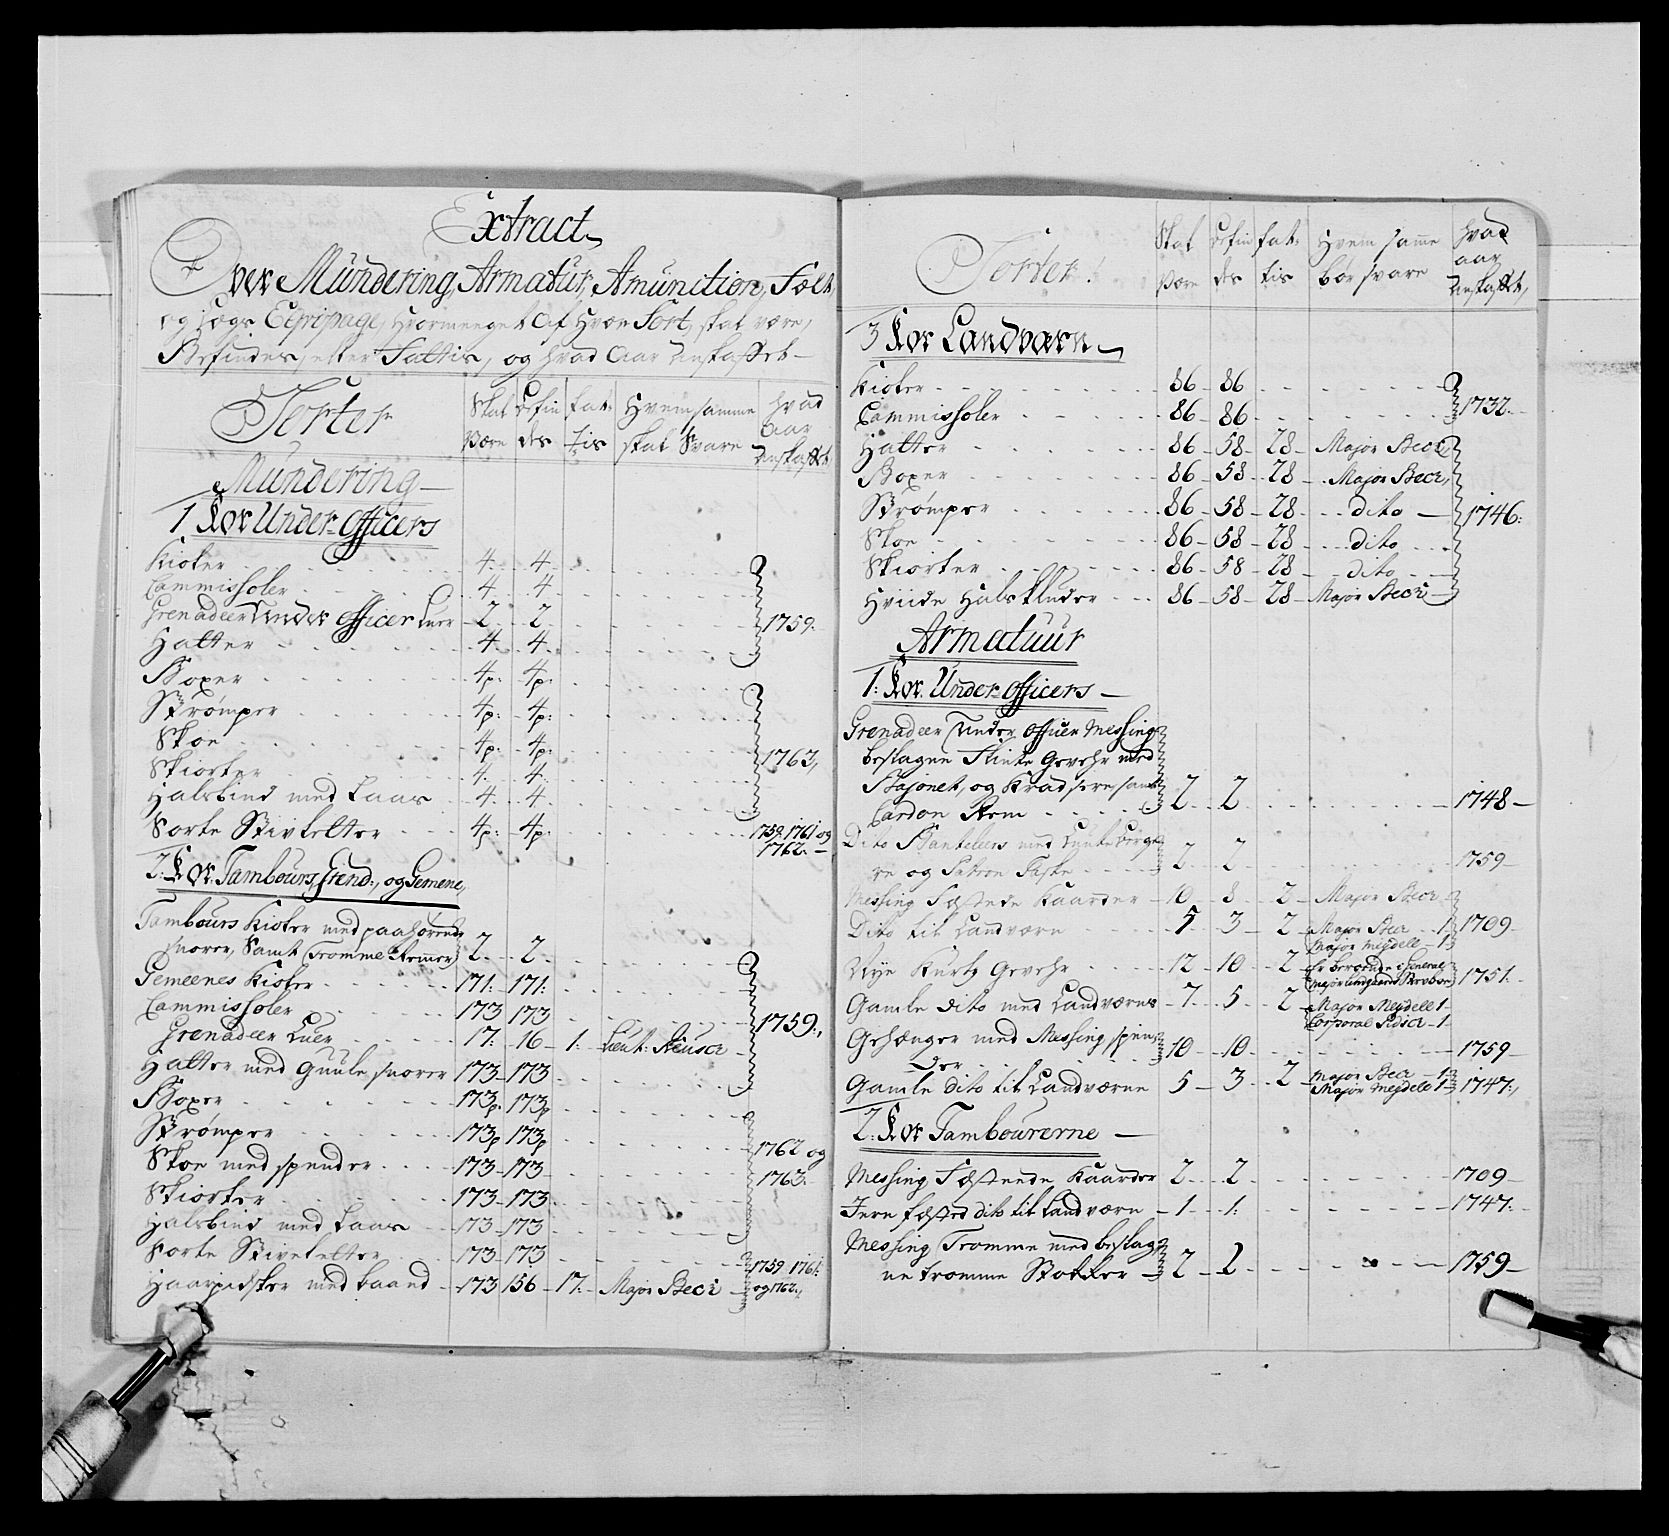 Extract
Over Mündering, Armatür, Amünition, Felt
og Equipage, Hvormeeget Af Hver Sort, skal være,
Befindes, eller Fattis, og hvad Aar Anskaffet
Sorter
Skal Være
Befindes
Fattis
Hvem samme skal Svare
Hvad Aar Anskaffet
Mündering
1 For Under-Officers
Kioler 4. 4.
Cammisholer 4. 4.
Grenadeer Under Officer Luer 2. 2. 1759.
Hatter 4. 4.
Boxer 4p: 4p:
Strømper 4p: 4p:
Skoe 4p: 4p: 1763,
Skiorter 4. 4.
Halsbind med Laas 4. 4.
Sorte Stivletter 4p: 4p: 1759. 1761 og 1762.
2. For Tambours, Grend:, og Gemene,
Tambours Kioler med paahørende
snorer, Samt Tromme Remmer 2. 2.
Gemeenes Kioler 171: 171:
Cammisholer 173 173 1759.,
Grenadeer Luer 17. 16 1. Lieut:
Hatter med Guule snorer 173 173
Boxer 173p 173p
Strømper 173p 173p 1762 og
Skoe med spender 173 173 1763.
Skiorter 173 173
Halsbind med Laas 173 173
Sorte Stivletter 173 173 1759. 1761.
Haarpidsker med baand 173 156 17. Major Beck og 1762.,
Sorter
Skal Være
Befindes
Fattis
Hvem samme bør svare
Hvad aar Anskaffet,
3 For Landværn
Kioler 86 86
Cammisholer 86 86 1732.
Hatter 86 58 28 Major Beck
Boxer 86 58 28 Major Beck,
Strømper 86 58 28 dito 1746:
Skoe 86 58 28 dito
Skiorter 86 58 28 dito
Hviide Halsklüder 86 58 28 Major Beck
Armatuur
1: For Under-Officers
Grenadeer Under Officer Messing
beslagne Flinte Gevehr med
Bajonet, og Kradsere samt
Cardon Rem 2. 2 1748
Dito Banteleers med Lunteberge
re og Patron Taske 2 2 1759
Messing Fæstede Kaarder 10 8 2 Major Beck
Dito til Landværn 5 3 2 Major Beck 1 1709
Major Mejdell 1
Nye Kurtz Gevehr 12 10 2 1751.
Gamle dito med Landværnet 7 5 2 Major Mejdell 1
Corporal 1
Gehænger med Messing spen
der 10 10 1759
Gamle dito til Landværne 5 3 2 Major Beck 1 1747.,
Major Mejdell 1
2: For Tambourerne
Messing Fæstede Kaarder 2 2 1709
Jern fæsted dito til Landværne 1 1. 1747.
Messing Tromme med beslag
ne tromme Stokker 2 2 1759